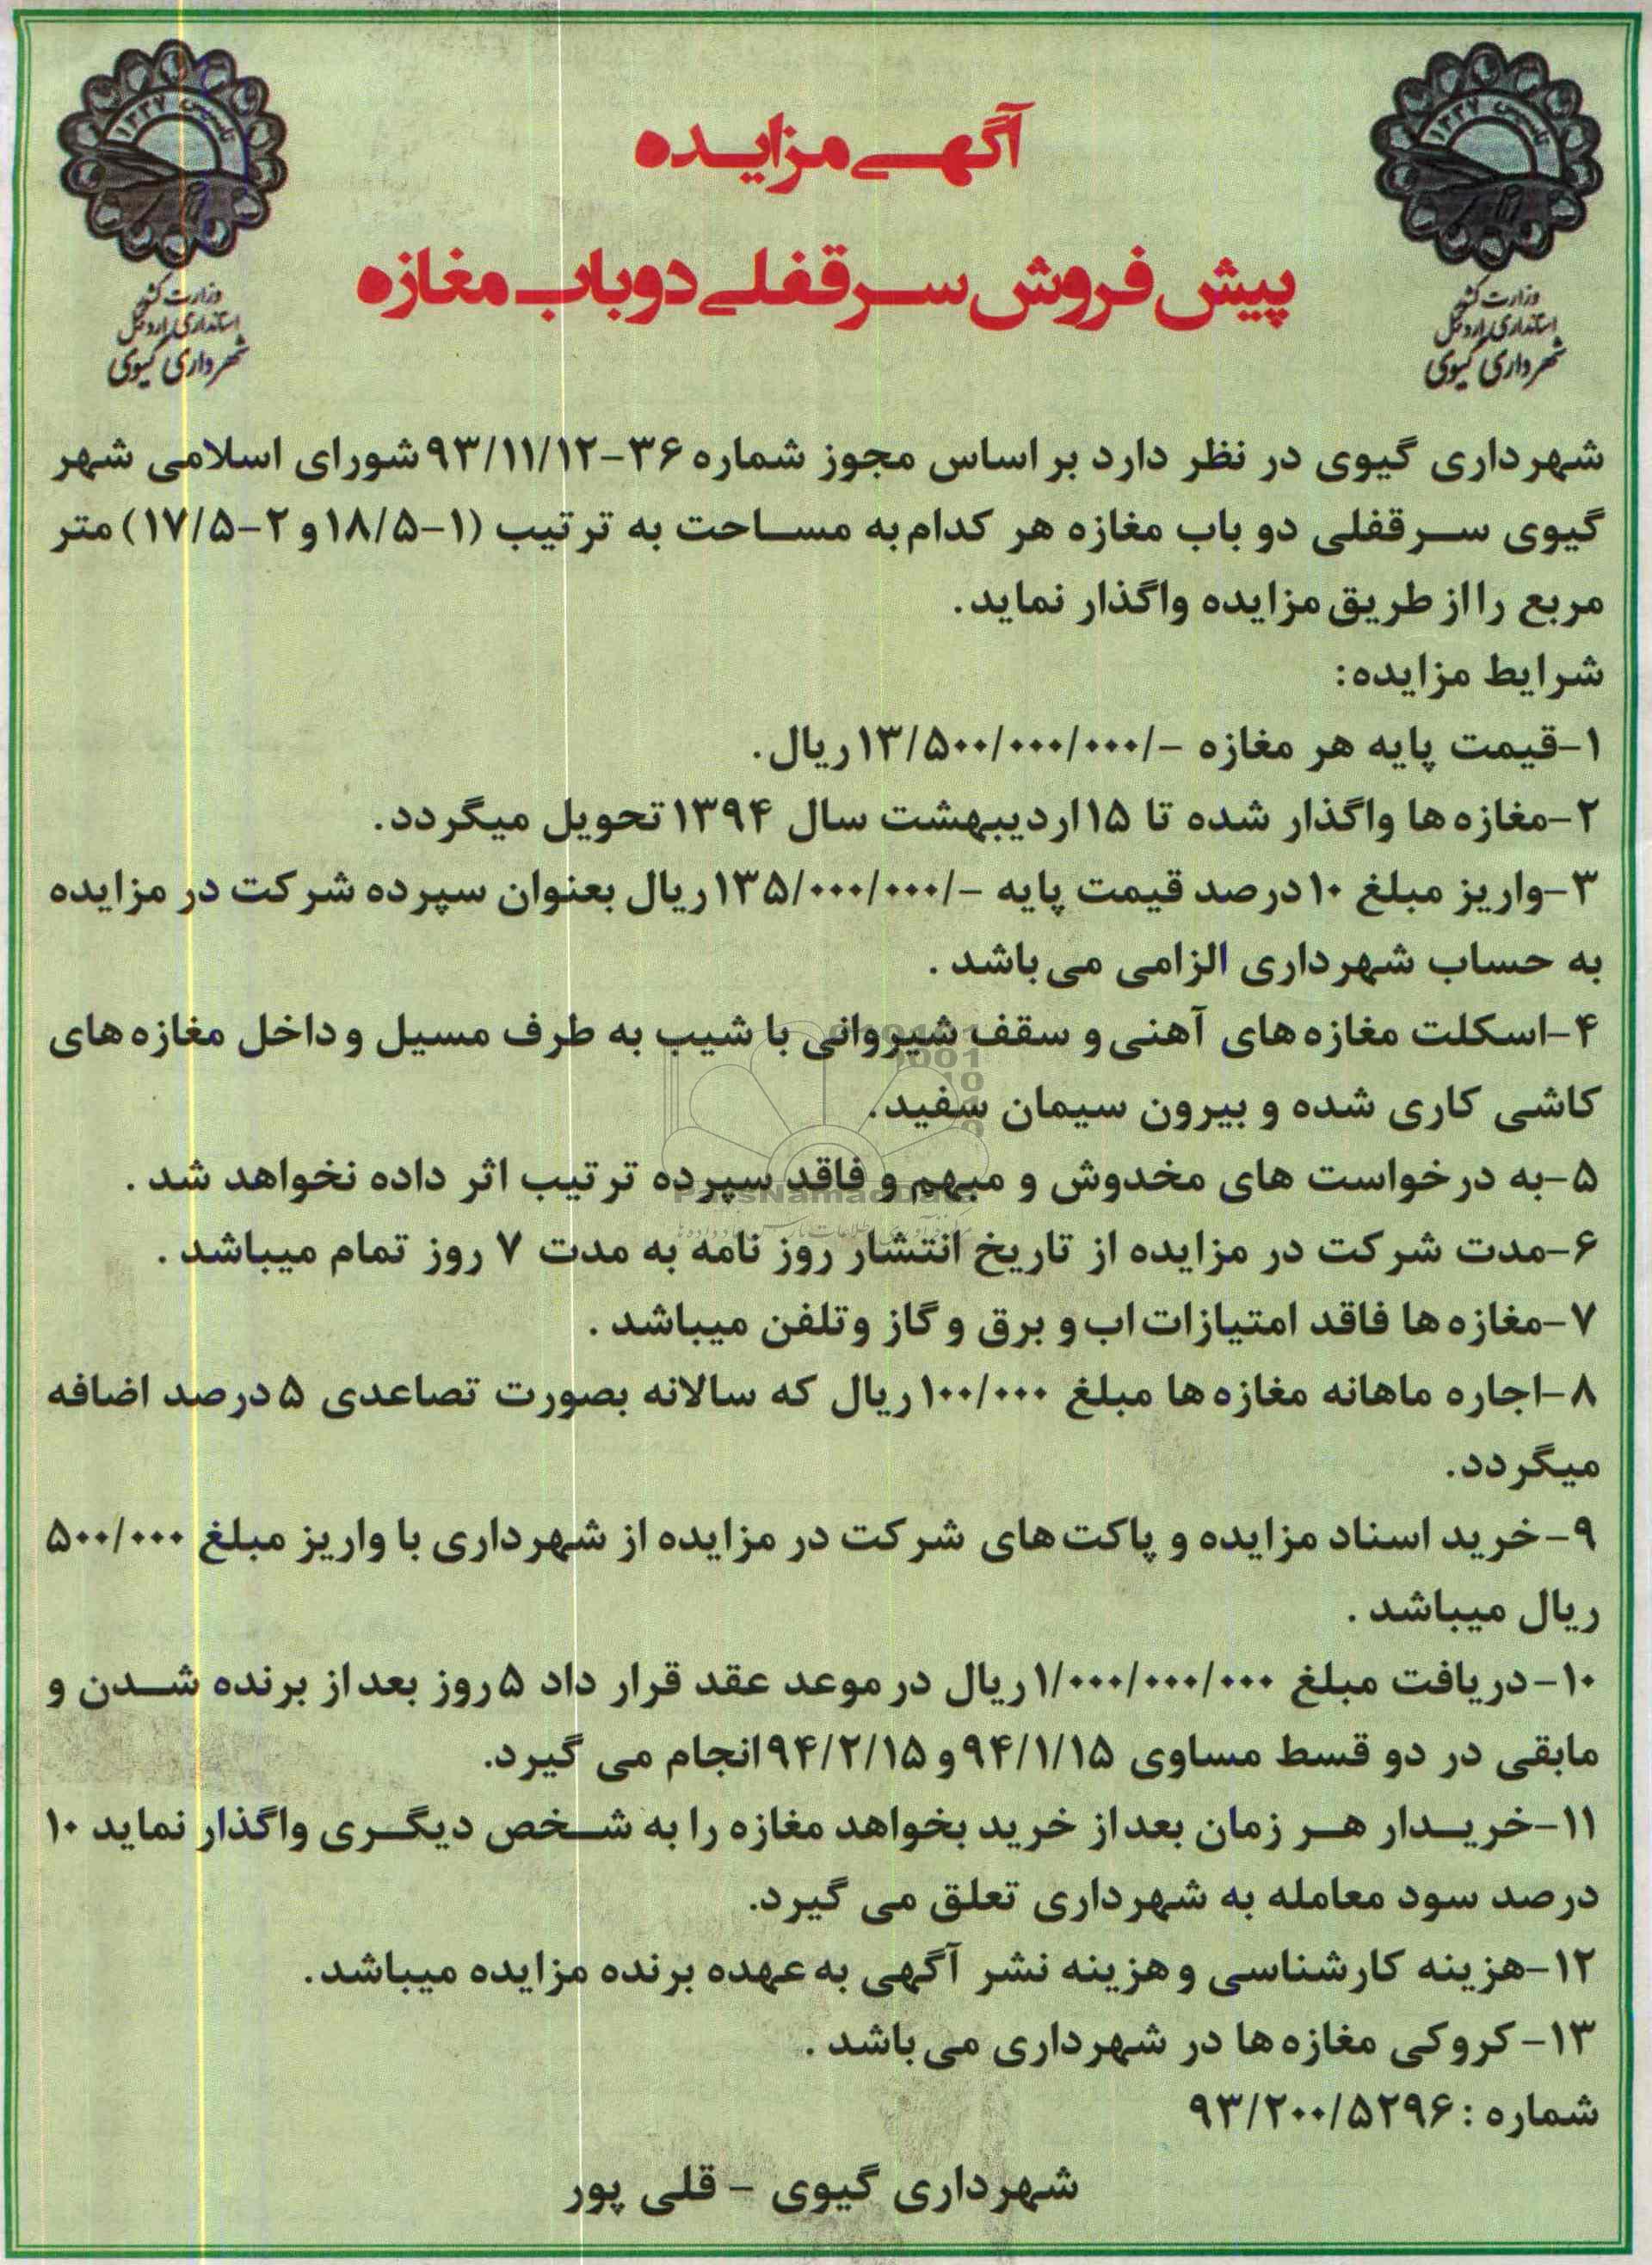 تاسیس ۱۳۳۷
وزارت کشور
استانداری اردبیل
شهرداری گیوی
آگهی مزایده
پیش فروش سرقفلی دو باب مغازه
تاسیس ۱۳۳۷
وزارت کشور
استانداری اردبیل
شهرداری گیوی
شهرداری گیوی در نظر دارد بر اساس مجوز شماره ۳۶-۹۳/۱۱/۱۲ شورای اسلامی شهر
گیوی سرقفلی دو باب مغازه هر کدام به مساحت به ترتیب (۱-۱۸/۵ و ۲-۱۷/۵) متر
مربع را از طریق مزایده واگذار نماید.
شرایط مزایده:
۱-قیمت پایه هر مغازه -/۱۳/۵۰۰/۰۰۰/۰۰۰ ریال.
۲-مغازه ها واگذار شده تا ۱۵ اردیبهشت سال ۱۳۹۴ تحویل میگردد.
۳-واریز مبلغ ۱۰ درصد قیمت پایه -/۱۳۵/۰۰۰/۰۰۰ ریال بعنوان سپرده شرکت در مزایده
به حساب شهرداری الزامی می باشد .
۴-اسکلت مغازه های آهنی و سقف شیروانی با شیب به طرف مسیل و داخل مغازه های
کاشی کاری شده و بیرون سیمان سفید.
۵-به درخواست های مخدوش و مبهم و فاقد سپرده ترتیب اثر داده نخواهد شد .
ParsNamadData
۶-مدت شرکت در مزایده از تاریخ انتشار روز نامه به مدت ۷ روز تمام میباشد .
۷-مغازه ها فاقد امتیازات اب و برق و گاز و تلفن میباشد .
۸-اجاره ماهانه مغازه ها مبلغ ۱۰۰/۰۰۰ ریال که سالانه بصورت تصاعدی ۵ درصد اضافه
میگردد.
۹-خرید اسناد مزایده و پاکت های شرکت در مزایده از شهرداری با واریز مبلغ ۵۰۰/۰۰۰
ریال میباشد .
۱۰-دریافت مبلغ ۱/۰۰۰/۰۰۰/۰۰۰ ریال در موعد عقد قرار داد ۵ روز بعد از برنده شدن و
مابقی در دو قسط مساوی ۹۴/۱/۱۵ و ۹۴/۲/۱۵ انجام می گیرد.
۱۱-خریدار هر زمان بعد از خرید بخواهد مغازه را به شخص دیگری واگذار نماید ۱۰
درصد سود معامله به شهرداری تعلق می گیرد.
۱۲-هزینه کارشناسی و هزینه نشر آگهی به عهده برنده مزایده میباشد.
۱۳-کروکی مغازه ها در شهرداری می باشد .
شماره : ۹۳/۲۰۰/۵۲۹۶
شهرداری گیوی - قلی پور